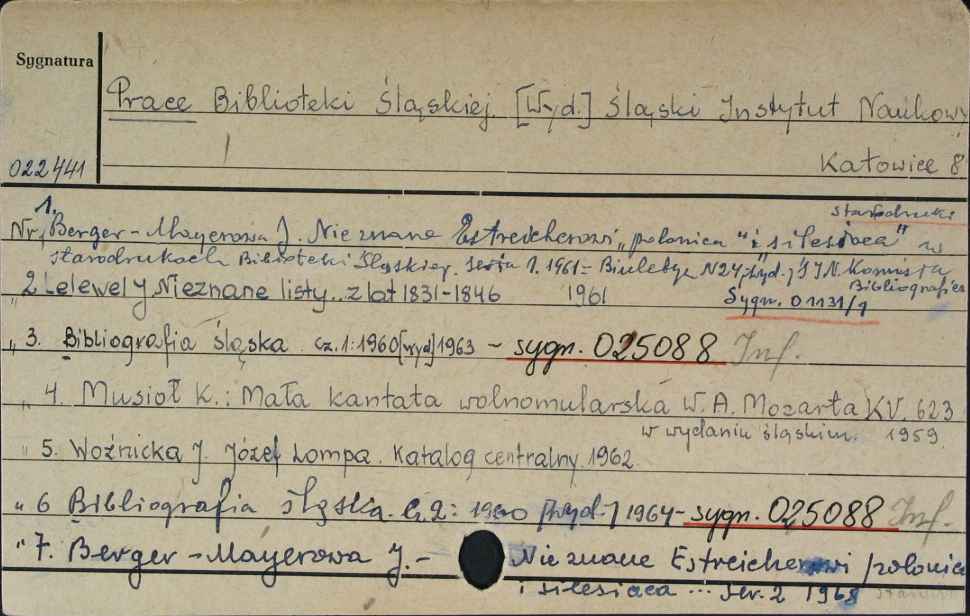 Sygnatura
Prace Biblioteki Śląskiej. [Wyd.] Śląski Instytut Naukowy
022441
Katowice 8
1.
starodruki
Nr, Berger-Mayerowa J. Nieznane Estreicherowi „polonica" i „silesiaca" w
starodrukach Biblioteki Śląskiej. Seria 1. 1961 = Biuletyn N24, [wyd.] ŚIN. Komisja
Bibliografica
„ 2 Lelewel J. Nieznane listy.. z lat 1831-1846 1961
Sygn. 01131/1
„ 3. Bibliografia śląska. cz.1:1960[wyd]1963 - sygn. 025088 Inf.
„ 4. Musioł K.: Mała kantata wolnomularska W. A. Mozarta KV. 623
w wydaniu śląskim. 1959
„ 5. Woźnicka J. Józef Lompa. Katalog centralny. 1962
„ 6 Bibliografia śląska. Cz. 2: 1960 [wyd.] 1964 - sygn. 025088 Inf.
„ 7. Berger-Mayerowa J. - Nieznane Estreicherowi polonica
i silesiaca ... ser. 2 1968